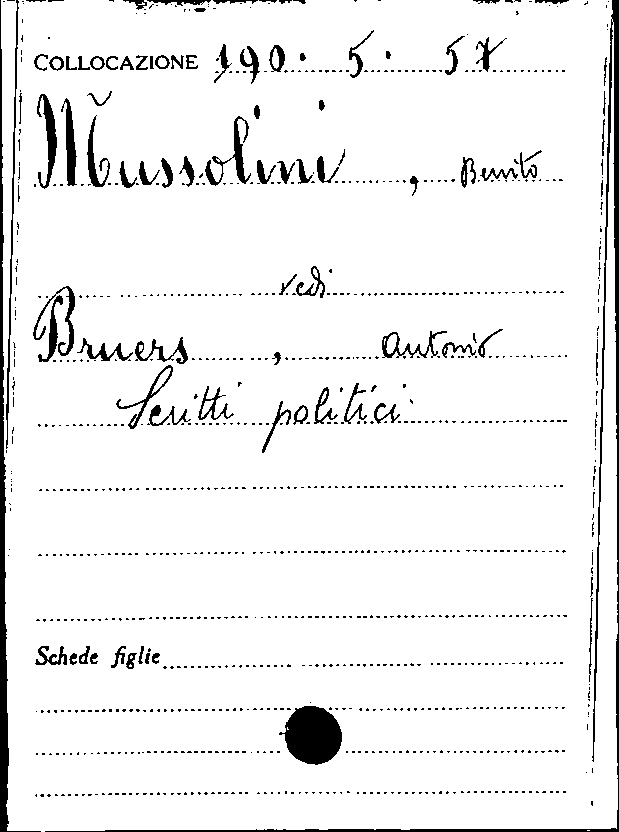 COLLOCAZIONE 190. 5. 57
Mussolini, Benito
vedi
Bruers, Antonio
Scritti politici
Schede figlie